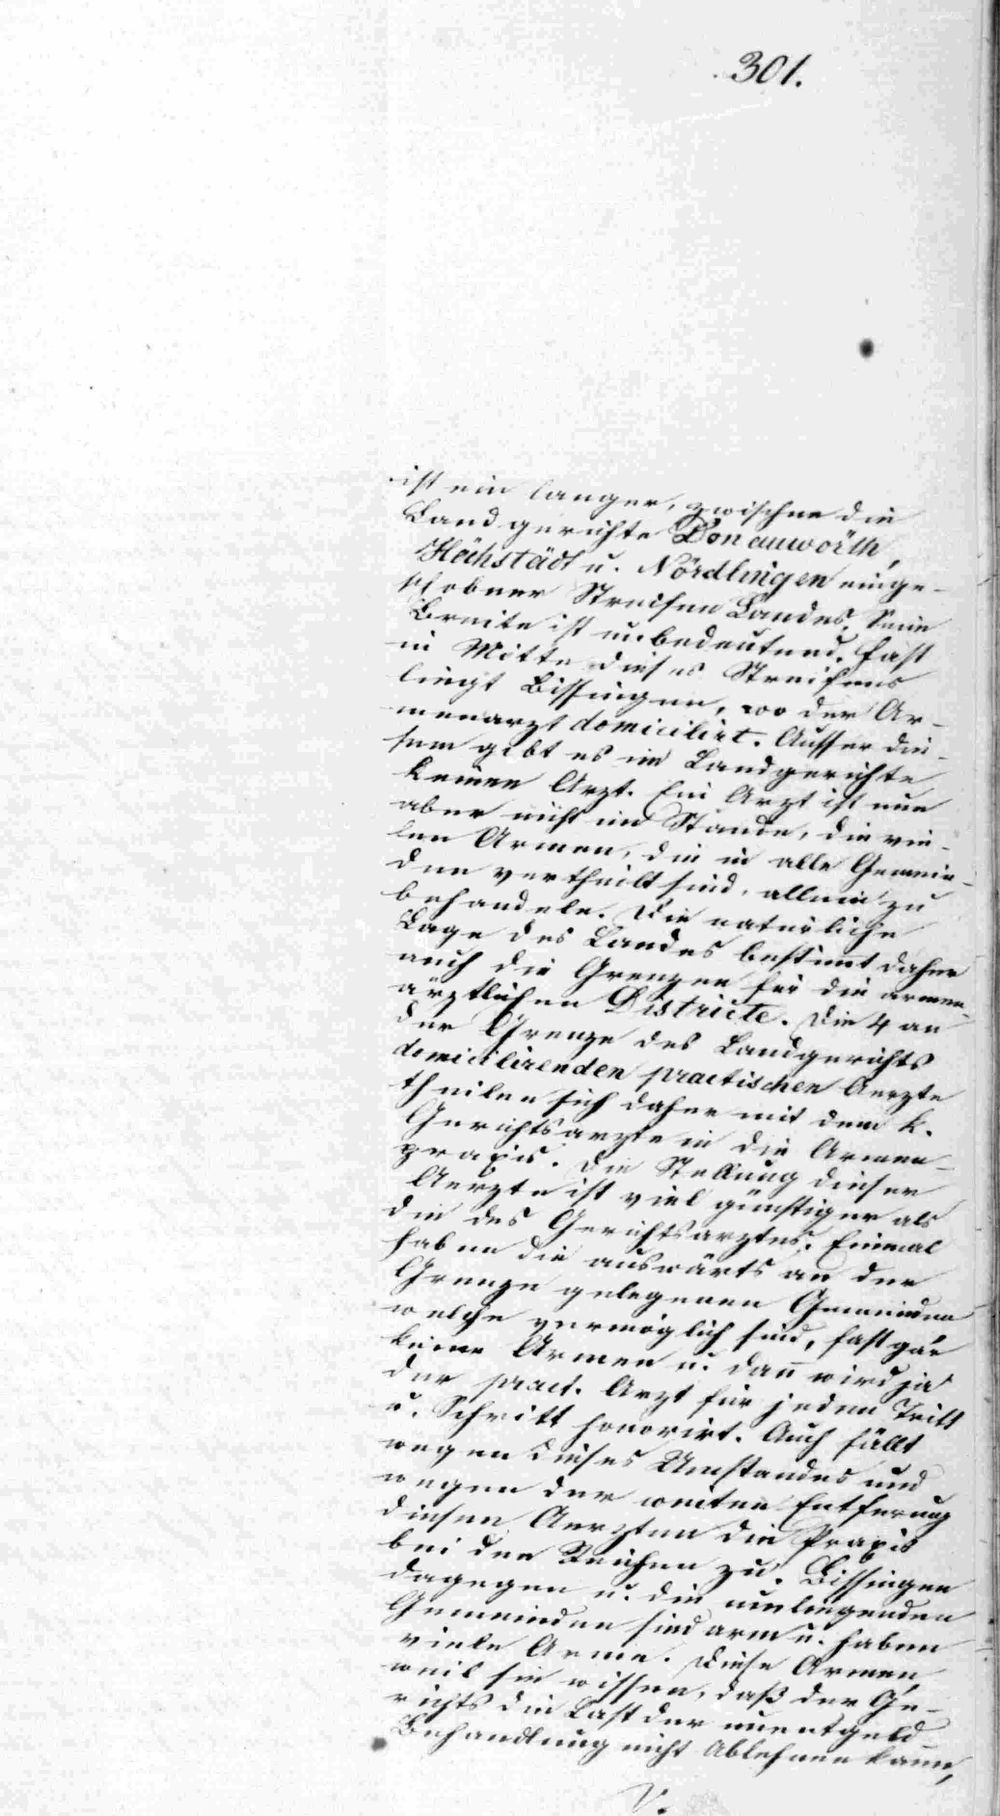 301.
ist ein langer, zwischen die
Landgerichte Donauwörth,
Höchstädt u. Nördlingen einge-
schobner Streifen Landes. Seine
Breite ist unbedeutend. Fast
in Mitte dieses Streifens
liegt Bissingen, wo der Ar-
menarzt domicilirt. Ausser die-
sem gibt es im Landgerichte
keinen Arzt. Ein Arzt ist nun
aber nicht im Stande, die vie-
len Armen, die in alle Gemein-
den vertheilt sind, allein zu
behandeln. Die natürliche
Lage des Landes bestimt daher
auch die Grenzen für die armen-
ärztlichen Districte. Die 4 an
der Grenze des Landgerichts
domicilirenden practischen Aerzte
theilen sich daher mit dem k.
Gerichtsarzte in die Armen-
praxis. Die Stellung dieser
Aerzte ist viel günstiger als
die des Gerichtsarztes. Einmal
haben die auswärts an der
Grenze gelegenen Gemeinden
welche vermöglich sind, fast gar
keine Armen u. dan wird ja
der pract. Arzt für jeden Tritt
u. Schritt honorirt. Auch fällt
wegen dieses Umstandes und
wegen der weiten Entfernung
diesen Aerzten die Praxis
bei den Reichen zu. Bissingen
dagegen u. die umliegenden
Gemeinden sind arm u. haben
viele Arme. Diese Armen,
weil sie wissen, daß der Ge-
richts die Last der unentgeld-
Behandlung nicht Ablehnen kann,